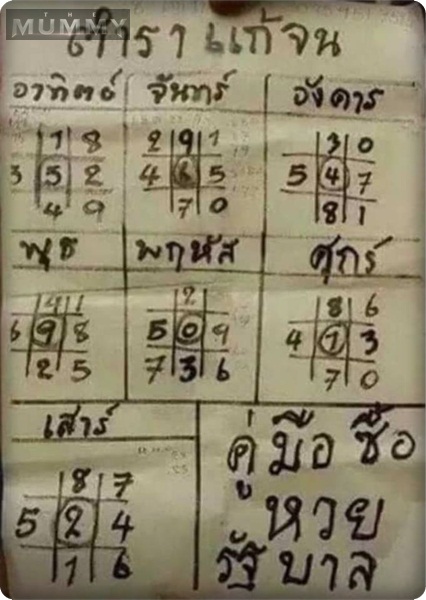 MUMMY
ตำราแก้จน
อาทิตย์ จันทร์ อังคาร
1 8 2 9 1 3 0
3 5 2 4 6 5 5 4 7
4 9 7 0 8 1
พุธ พฤหัส ศุกร์
4 1 2 8 6
6 9 8 5 0 9 4 1 3
2 5 7 3 6 7 0
เสาร์
8 7
5 2 4
1 6
คู่มือซื้อ
หวย
รัฐบาล